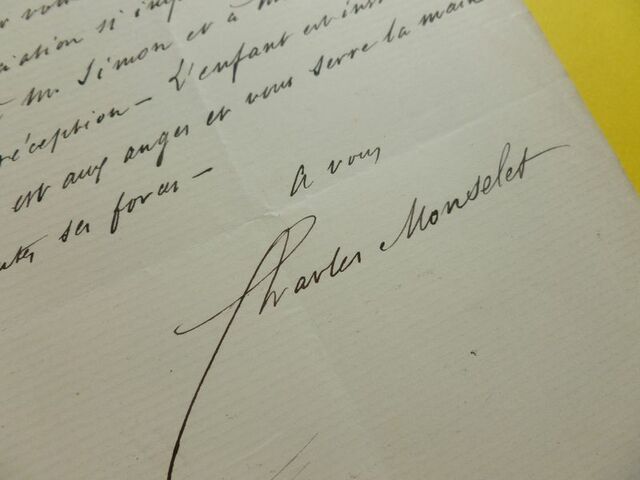 r vou
ciation si imp
M. Simon et à M
réception – L'enfant est inst
est aux anges et vous serre la main
utes ses forces –
à vous
Charles Monselet